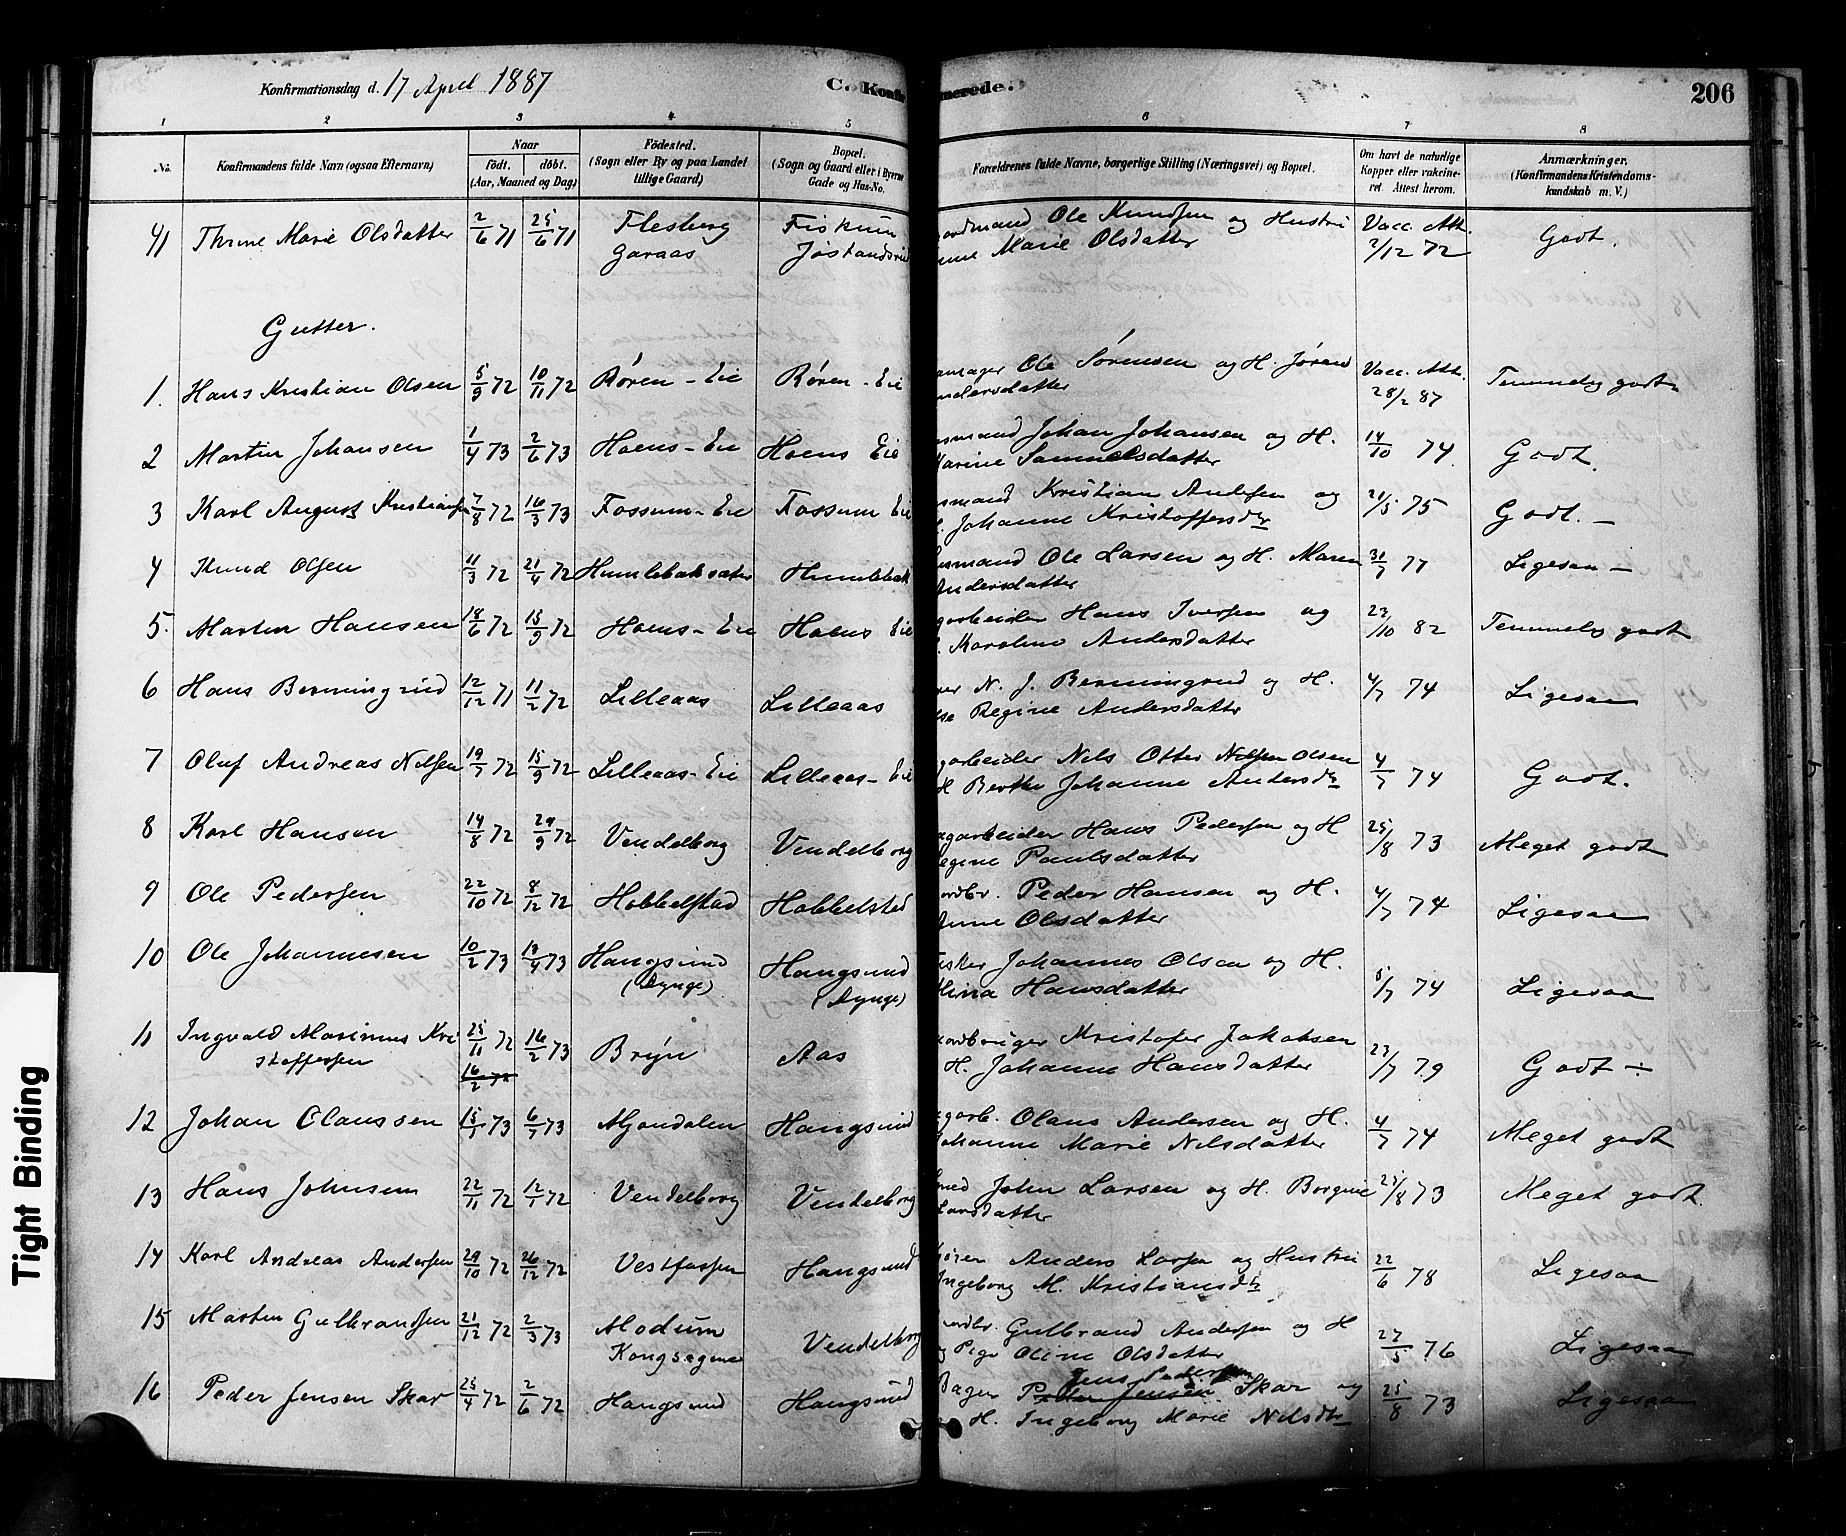 Konfirmationsdag d. 17 April 1887
C. Konfir merede.
206
1 2 3 4 5 6 7 8
No. Konfirmandens fulde Navn (ogsaa Efternavn) Naar født. døbt. (Aar, Maaned og Dag) Födested. (Sogn eller By og paa Landet tillige Gaard) Bopæl. (Sogn og Gaard eller i Byerne Gade og Hus-No. Forældrenes fulde Navne, borgerlige Stilling (Næringsvei) og Bopæl. Om havt de naturlige Kopper eller vakcineret. Attest herom. Anmærkninger. (Konfirmandens Kristendomskundskab m. V.)
41 Thrine Marie Olsdatter 2/6 71 25/6 71 Flesberg Fiskum Ole Knudsen og Hustru Vacc. Att. Godt.
Garaas Marie Olsdatter 2/12 72
Gutter.
1. Hans Kristian Olsen 5/9 72 10/11 72 Røren - Eie Røren - Eie Ole Sørensen og H. Jøran Vacc. Att. Temmelig godt
ndersdatter 28/2 87
2 Martin Johansen 1/4 73 2/6 73 Hoens - Eie Hoens Eie smand Johan Johansen og H. 14/10 74 Godt.
Karine Samuelsdatter
3 Karl August Kristiansen 7/8 72 16/3 73 Fossum - Eie Fossum Eie smand Kristian Andersen og 21/5 75 Godt. -
Johanne Kristoffersdtr
4 Knud Olsen 11/3 72 21/4 72 Humlebæksæter Humlebæk smand Ole Larsen og H. Maren 31/7 77 Ligesaa -
Andersdatter
5. Martin Hansen 18/6 72 15/9 72 Hoens - Eie Hoens Eie garbeider Hans Iversen og 23/10 82 Temmelig godt
Karoline Andersdatter
6 Hans Bermingrud 12/12 71 11/2 72 Lilleaas Lilleaas N. J. Bermingrud og H. 4/7 74 Ligesaa
Regine Andersdatter
7 Oluf Andreas Nilsen 19/7 72 15/9 72 Lilleaas - Eie Lilleaas - Eie garbeider Nils Otter Nilsen Olsen 4/7 74 Godt.
H Berthe Johanne Andersdtr
8 Karl Hansen 14/8 72 29/9 72 Vendelborg Vendelborg garbeider Hans Pedersen og H 25/8 73 Meget godt
egine Paulsdatter
9 Ole Pedersen 22/10 72 8/12 72 Hobbelstad Hobbelsted ardbr. Peder Hansen og H. 4/7 74 Ligesaa
Anne Olsdatter
10 Ole Johannesen 10/2 73 14/4 73 Hangsund Hangsund Johannes Olsen og H. 5/7 74 Ligesaa
(Dynge) (Dynge) Hansdatter
11 Ingvald Marinus Kri 25/11 72 16/2 73 Bryn Aas ardbruger Kristofer Jakobsen 27/7 79 Godt ÷
stoffersen 16/2 72 H. Johanne Hansdatter
12 Johan Olaussen 15/1 73 6/7 73 Mjøndalen Hangsund garb. Olaus Andersen og H. 4/7 74 Meget godt
Johanne Marie Nilsdatter
13 Hans Johnsen 22/11 72 12/1 72 Vendelborg Vendelborg med John Larsen og H. Borgine 25/8 73 Meget godt
Larsdatter
14 Karl Andreas Andersen 29/10 72 26/12 72 Vestfossen Hangsund Anders Larsen og Hustru 22/6 78 Ligesaa
Ingeborg M. Kristiansdtr
15 Martin Gulbrandsen 21/12 72 2/3 73 Modum Vendelborg ardbr. Gulbrand Andersen og H 27/5 76 Ligesaa
Kongsegne Pige Oline Olsdatter
Jens Pedersen
16 Peder Jensen Skar 25/4 72 2/6 72 Hangsund Hangsund Bager Peder Jensen Skar og 25/8 73 Ligesaa
H. Ingeborg Marie Nilsdtr
Tight Binding